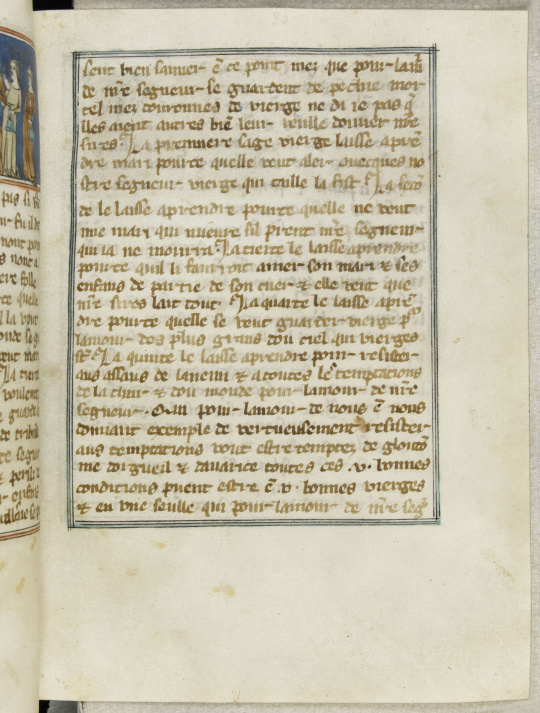 seut bien sauuer ē ce point mez que pour lam̄
de nr̄e segneur se guardent de pechie mor
tel mez couronnes de vierge ne di ie pas q̄
lles aient autres biē leur veulle donner nr̄e
sires. La premiere sage vierge laisse a prē
dre mari pource quelle veut aler auecques no
stre segneur vierge qui taille la fist. La secō
de le laisse a prendre pource quelle ne veut
mie mari qui muere sil prent nr̄e segneur
qui ia ne mourra. La tierce le laisse a prendre
pource quil li fauroit amer son mari & ses
enfans de partie de son cuer & elle veut que
nr̄e sires lait tout. La quarte le laisse a prē
dre pource quelle se veut guarder vierge pō
lamour dos plus grans dou ciel qui vierges
st̄. La quinte le laisse aprendre pour resister
aus assaus de lanemi & a toutes les temptations
de la char & dou monde pour lamour de nr̄e
segneur. Q̄ui pour lamour de nous ē nous
donnant exemple de vertueusement resister
aus temptations vout estre temptez de glouto
nie dorgueil & dauarice toutes ces .v. bonnes
conditions pueent estre ē .v. bonnes vierges
& en vne seulle qui pour lamour de nr̄e seḡ
pas
fu il
nont